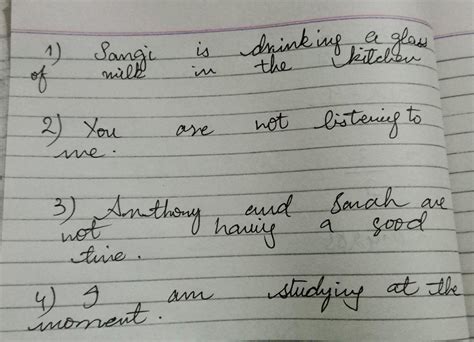 1) Sangi is drinking a glass
of milk in the kitchen
2) You are not listening to
me.
3) Anthony and Sarah are
not having a good
time.
4) I am studying at the
moment.